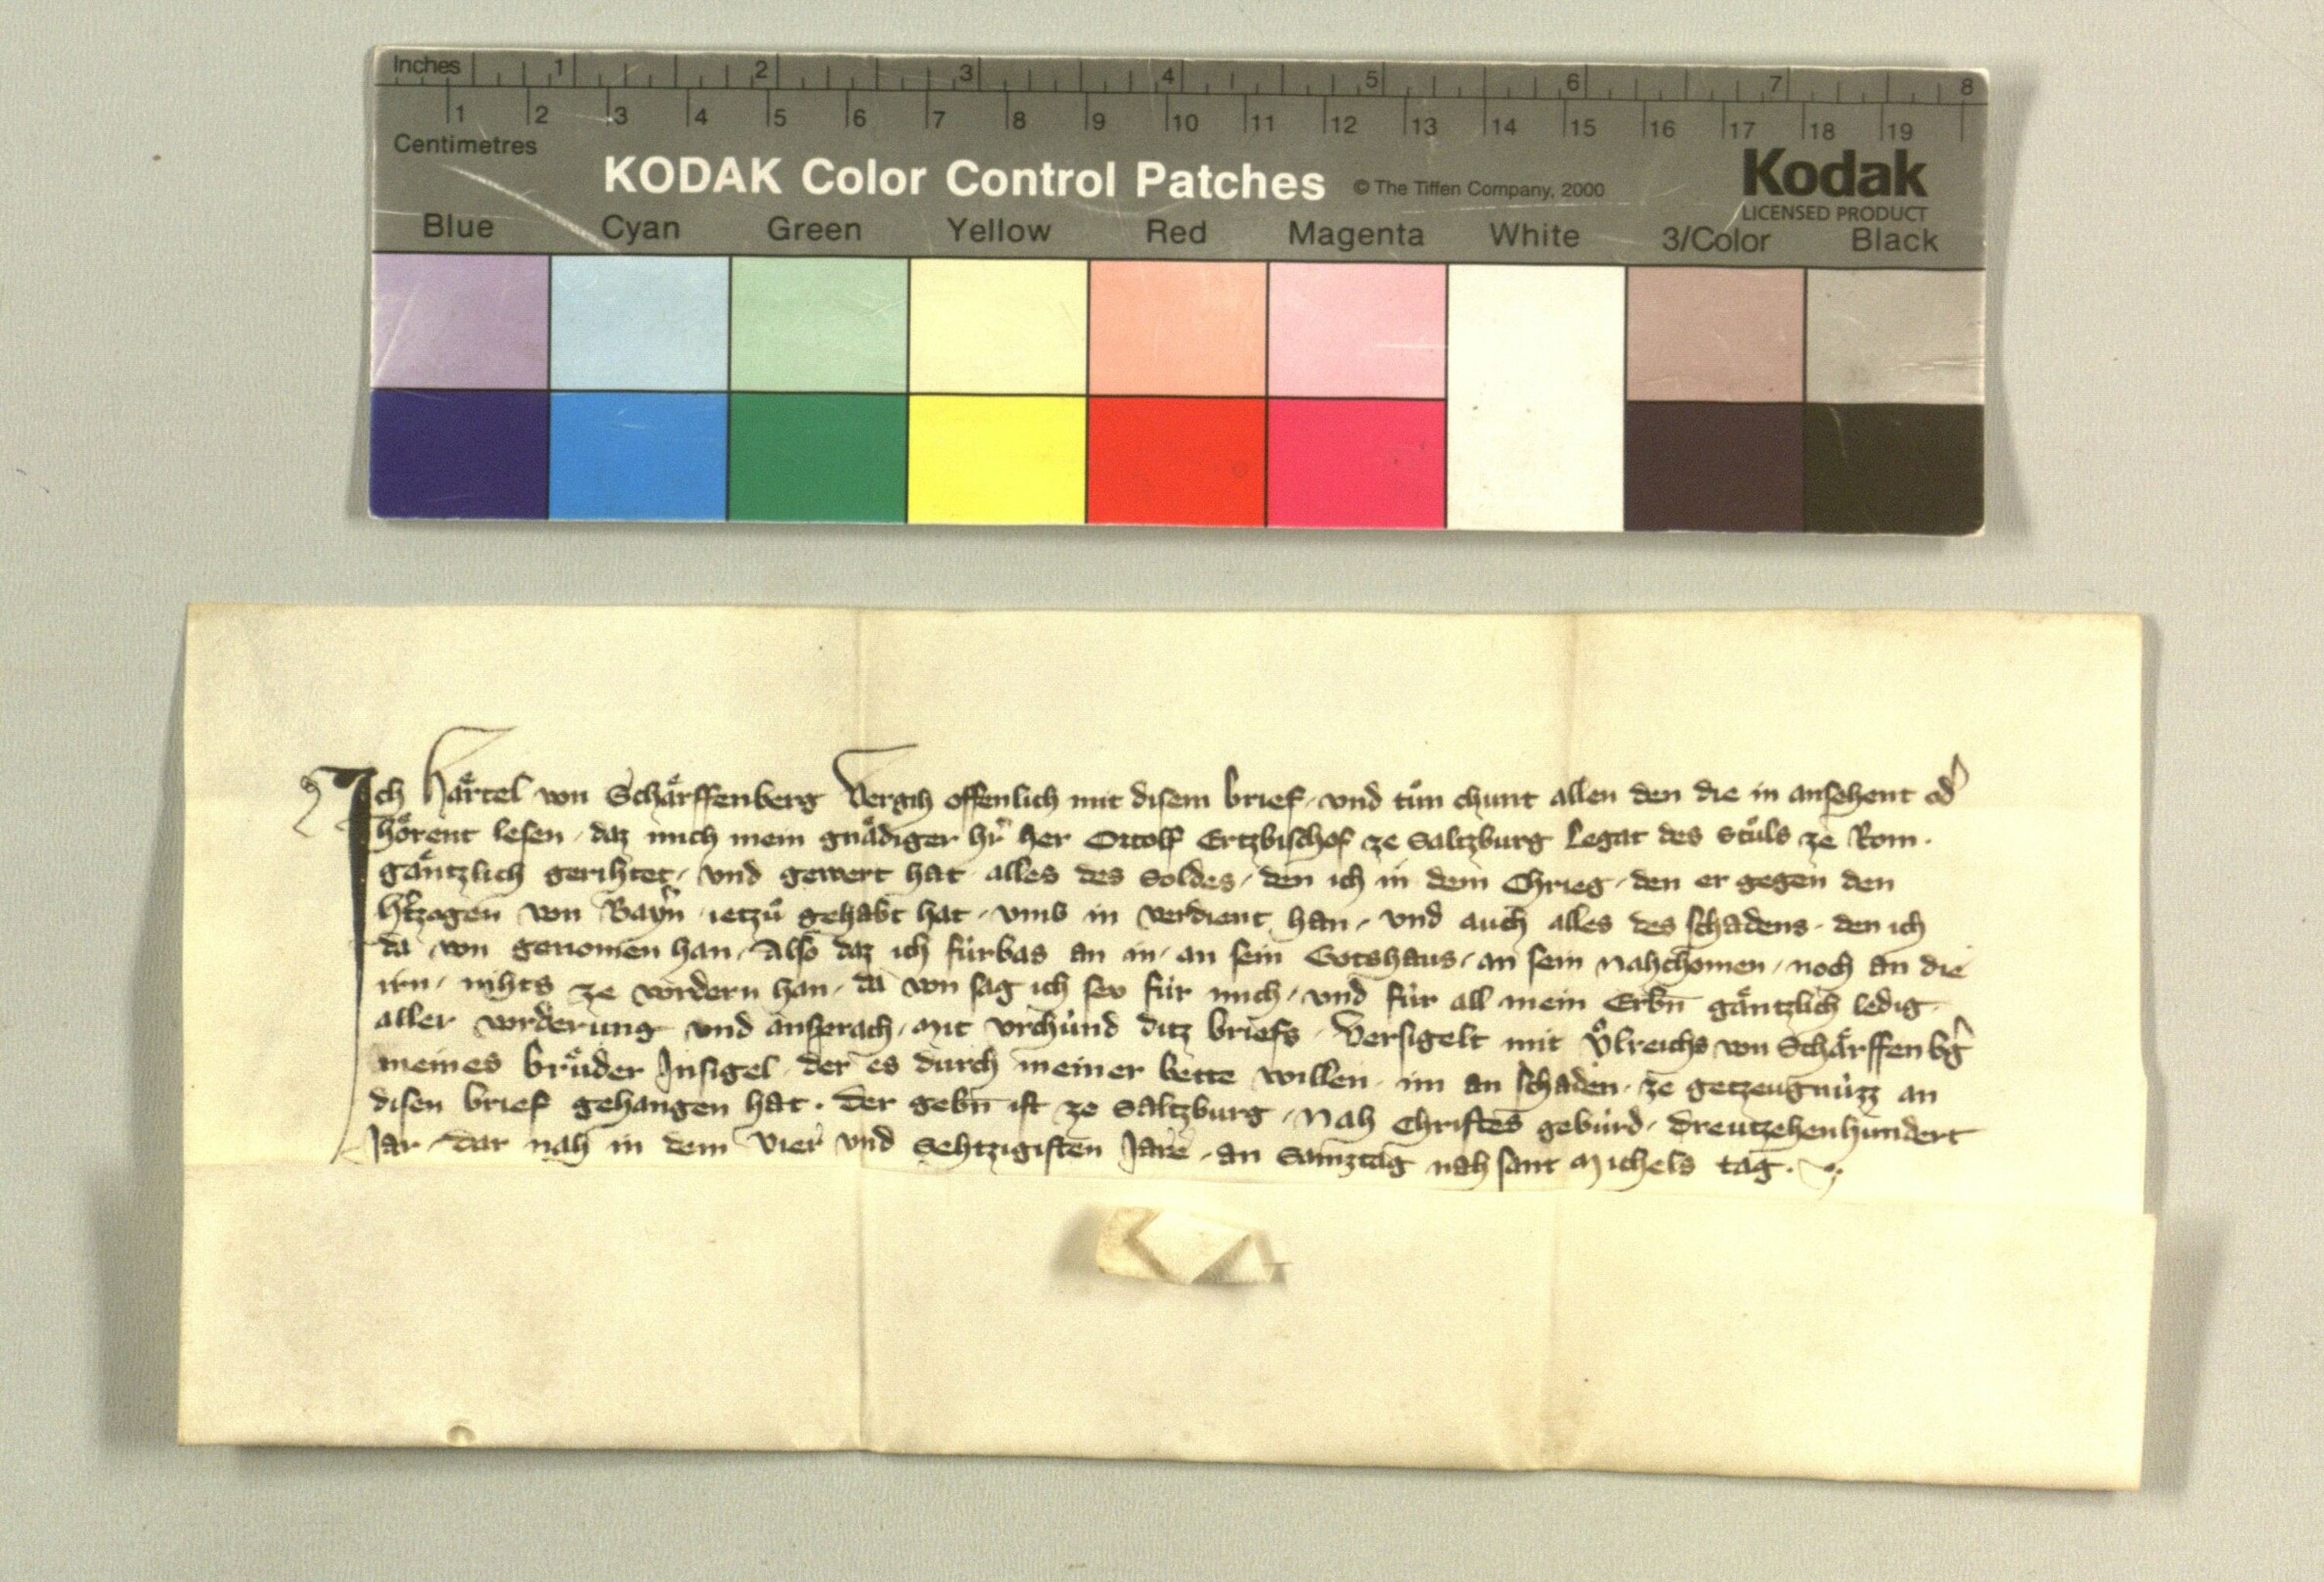 Inches 1 2 3 4 5 6 7 8
1 2 3 4 5 6 7 8 9 10 11 12 13 14 15 16 17 18 19
Centimetres
KODAK Color Control Patches © The Tiffen Company, 2000 Kodak
LICENSED PRODUCT
Blue Cyan Green Yellow Red Magenta White 3/Color Black
Ich Haͤrtel von Schaͤrffenberg Vergih offenlich mit disem brief, vnd tuͦn chunt allen den die in ansehent od̉
hoͤrent lesen, daz mich mein gnaͤdiger hr̉ her Ortolf Ertzbischof ze Saltzburg Legat des Stuͦls ze Rom.
gaͤntzlich gerihtet, vnd gewert hat alles des Soldes, den ich in dem Chrieg, den er gegen den
htzogen von Bayrn̄ ietzuͦ gehabt hat, vmb in verdient han, vnd auch alles des schadens, den ich
da von genomen han, Also daz ich fuͤrbas an in, an sein Gotshaus, an sein nahchomen, noch an die
irn, nihts ze vordern han, da von sag ich sev fuͤr mich, vnd fuͤr all mein Erbn̄ gaͤntzlich ledig.
aller vorderung vnd ansprach, Mit vrchuͤnd ditz briefs, Versigelt mit Vͦlreichs von Schaͤrffenbg̉
meines bruͤder Insigel, der es durch meiner bette willen, im an schaden, ze getzeugnuͤzz an
disen brief gehangen hat. Der gebn̄ ist ze Saltzburg, Nah Christes gebuͤrd, Dreutzehenhundert
Jar, dar nah in dem Vier vnd Sehtzigisten Jare, an Samztag nah sant Michels tag.